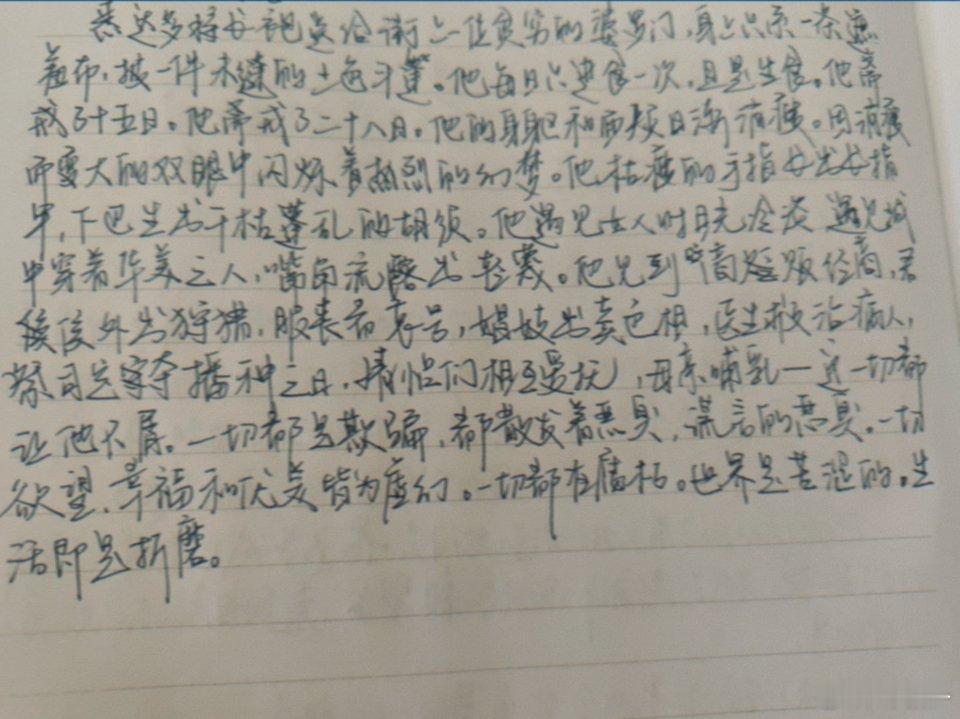 悉达多将衣袍送给街上一位贫穷的婆罗门,身上只系一条遮
羞布,披一件未缝的土色斗篷。他每日只进食一次,且是生食。他斋
戒了十五日。他斋戒了二十八日。他的身躯和面颊日渐消瘦。因消瘦
而变大的双眼中闪烁着热烈的幻梦。他枯瘦的手指长出长指
甲,下巴生出干枯蓬乱的胡须。他遇见女人时目光冷淡 遇见城
中穿着华美之人,嘴角流露出轻蔑。他见到商贩经商,君
侯外出狩猎,服丧者哀号,娼妓出卖色相,医生救治病人,
祭司定夺播种之日,情侣们相互爱抚,母亲哺乳—这一切都
让他不屑。一切都是欺骗,都散发着恶臭,谎言的恶臭。一切
欲望、幸福和优美皆为虚幻。一切都在腐朽。世界是苦涩的。生
活即是折磨。